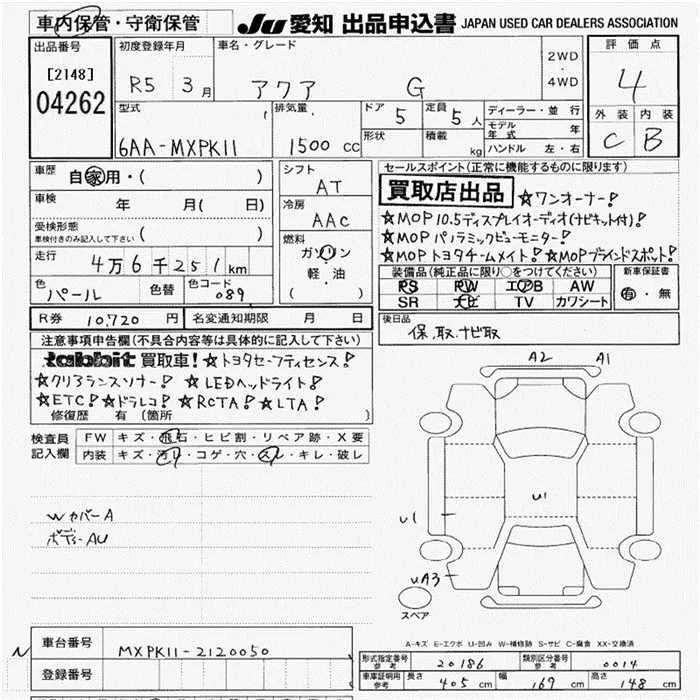 車内保管・守衛保管
JU 愛知 出品申込書 JAPAN USED CAR DEALERS ASSOCIATION
出品番号
[2148]
04262
初度登録年月
R5 3月
車名・グレード
アクア G
2WD
・
4WD
評価点
4
外装 内装
C B
型式
6AA-MXPK11
排気量
1500 cc
ドア 5
形状
定員 5人
積載 kg
ディーラー・並行
モデル年式 年
ハンドル 左・右
車歴 自家用・( )
車検 年 月( 日)
受検形態
車検付きのみ記入して下さい ( )
走行 4万6千251km
色 パール 色替 色コード 089
シフト
AT
冷房
AAC
燃料
ガソリン
軽・油
( )
セールスポイント(正常に機能するものに限ります)
買取店出品 ☆ワンオーナー!
★MOP 10.5ディスプレイオーディオ(ナビキット付)!
★MOP パノラミックビューモニター!
★MOP トヨタチームメイト! ★MOPブラインドスポット!
装備品(純正品に限り○をつけてください)
PS PW エアB AW
SR ナビ TV カワシート
新車保証書
有・無
R券 10,720円 名変通知期限 月 日
後日品
保.取.ナビ取
注意事項申告欄(不具合内容等は具体的に記入して下さい)
rabbit 買取車! ☆トヨタセーフティセンス!
☆クリアランスソナー! ☆LEDヘッドライト!
★ETC! ★ドラレコ! ★RCTA! ★LTA!
修復歴 有 (箇所 )
検査員記入欄
FW キズ・飛石・ヒビ割・リペア跡・X要
内装 キズ・汚レ・コゲ・穴・スレ・キレ・破レ
WカバーA
ボディーAU
A2 A1
U1
U1
UA3
スペア
A-キズ E-エクボ U-凹み W-補修跡 S-サビ C-腐食 XX-交換済
N 車台番号 MXPK11-2120050
登録番号
形式指定番号 参考 20186 類別区分番号 参考 0014
車庫証明用 参考 長さ 405cm 幅 169cm 高さ 148cm